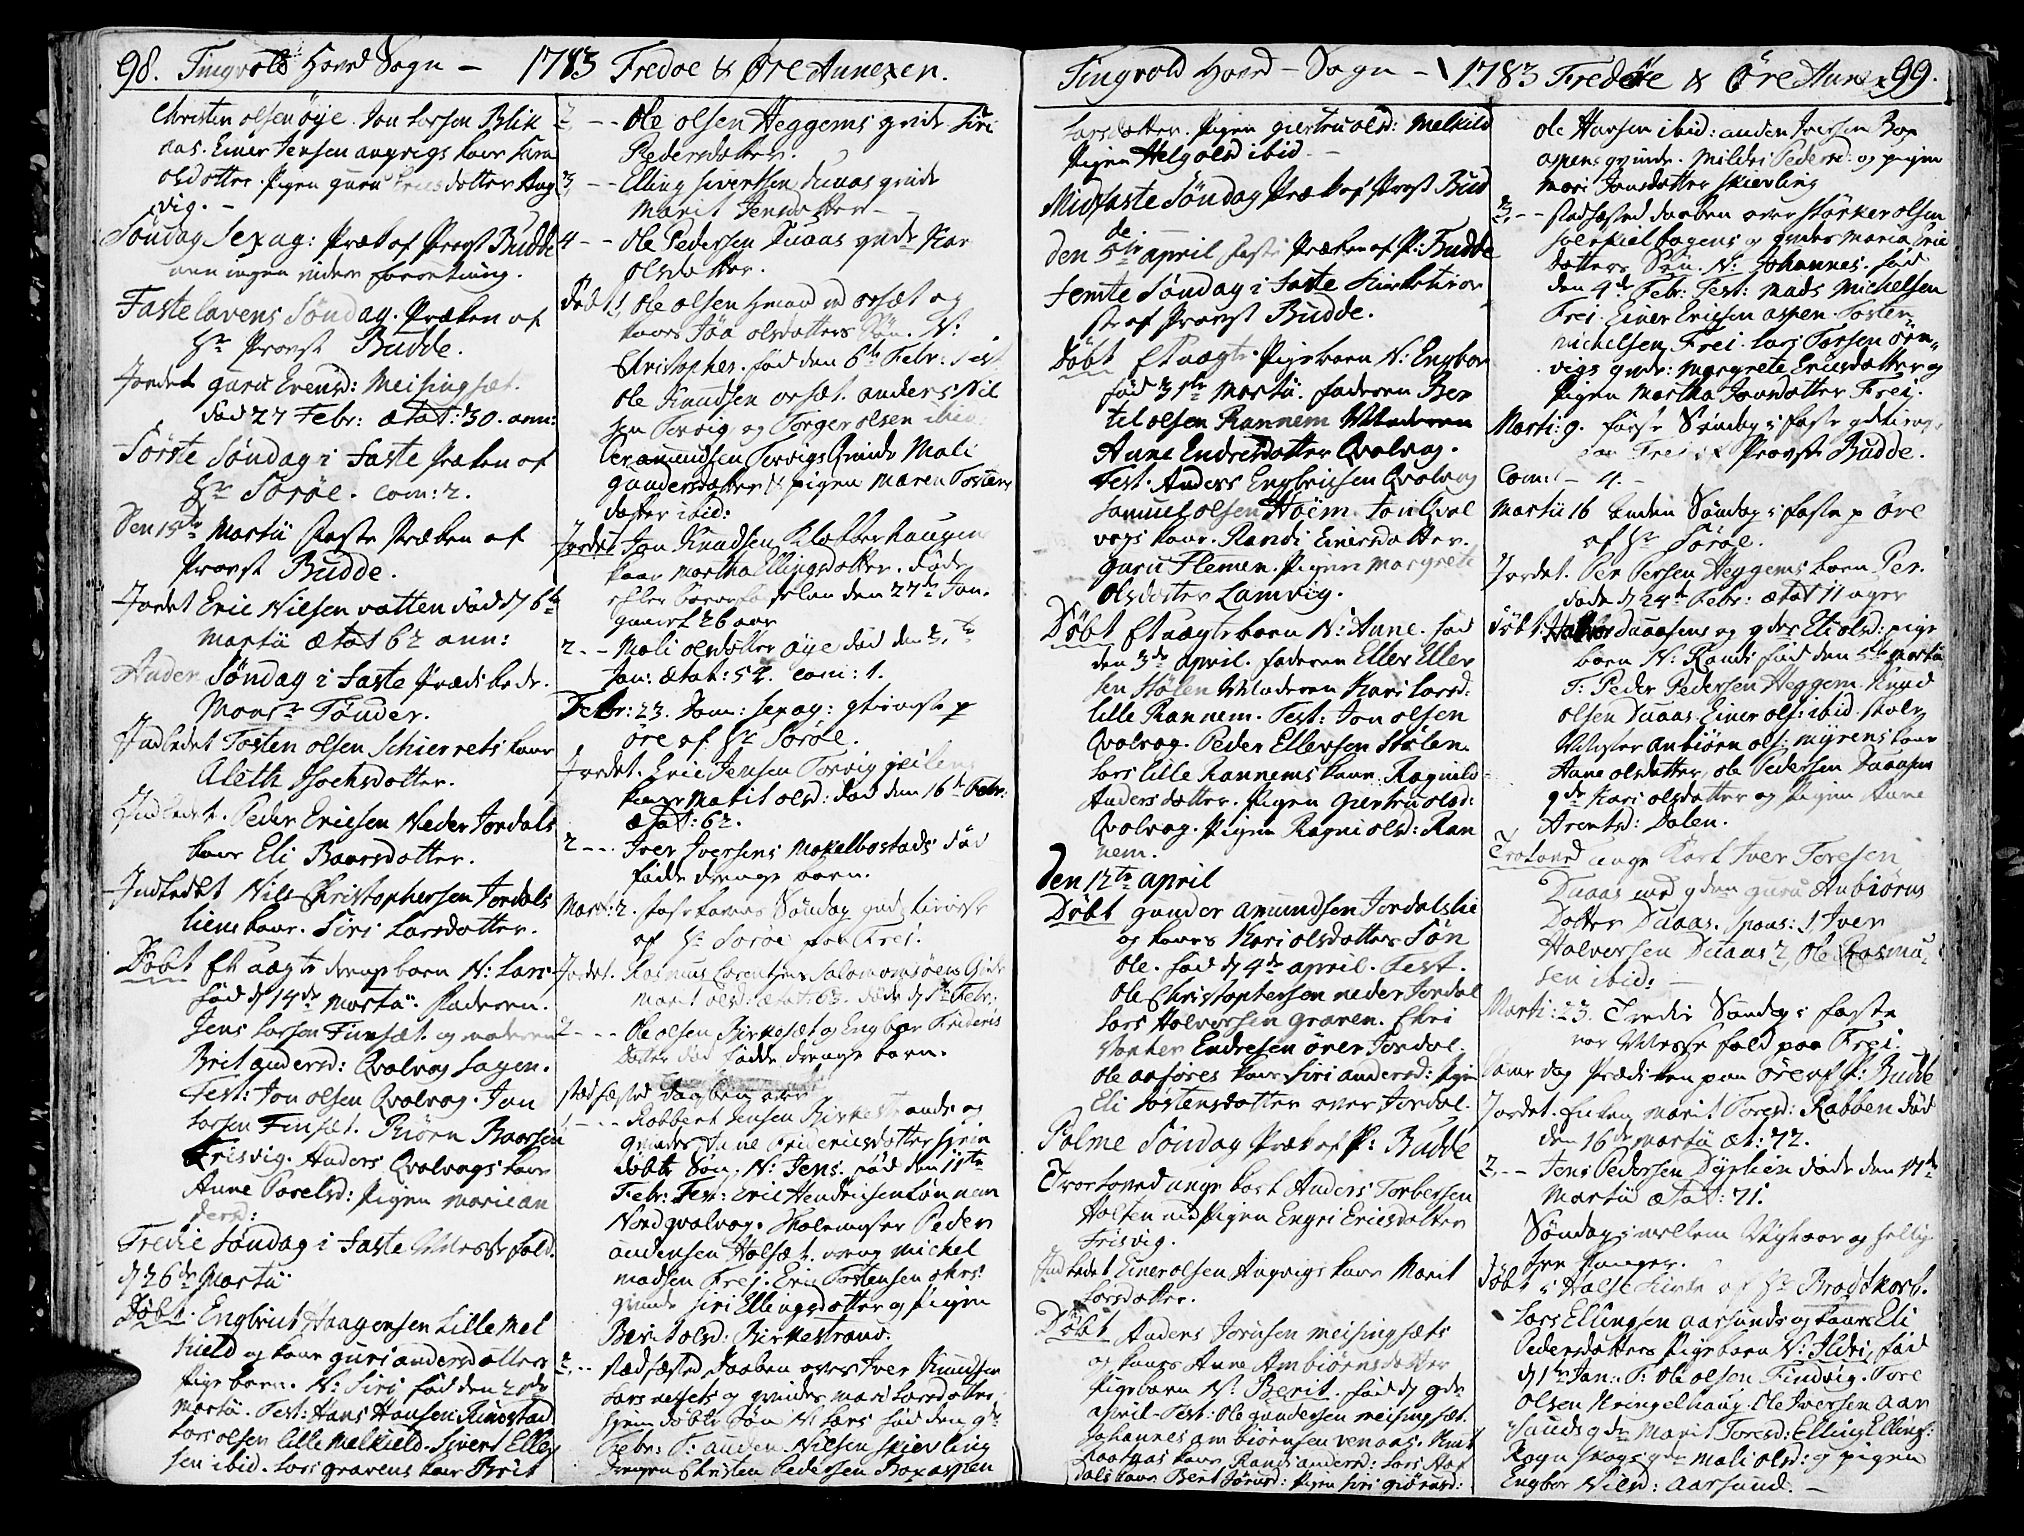 98. Tingvold Hoved Sogn - 1783 Fredøe & Øre Annexer.
Christen olsen øye. Jon Larsen Blik
aas. Einer Jensen angvigs kone Sara
olsdotter. Pigen guru dotter Ang
vig. -
Søndag Sexag: Præk af Provst Budde
men ingen videre forretning.
Fastelavens Søndag. Præken af
Hr Provst Budde.
Jordet guru Evensd: Meisingset.
død 27 Febr: ætat: 30. ann:
Første Søndag i Faste Præken af
Hr Sorøe. Com: 2.
Den 13de Martii Faste Præken af
Provst Budde.
Jordet Eric Nilsen vatten død d 6te
Martii ætat 62 ann:
Anden Søndag i Faste Prædikede
Monsr Tønder.
Indledet Tosten olsen Schierrets kone
Aleth Isachsdotter.
Indledet. Peder Ericsen Neder Jordals
kone Eli Baarsdotter.
Indledet Nils Christophersen Jordals
liens kone. Siri Larsdotter.
Døbt Et uægte drengebarn N: Lars
fød d 14de Martii. Faderen.
Jens Larsen Finset og moderen
Brit andersd: Qvalvog Hagen.
Test: Jon olsen Qvalvog. Jon
Larsen Finset. Biørn Baarsen
Frisvig. Anders Qvalvogs kone
Anne Povelsd: Pigen Marie an
dersd:
Tredie Søndag i Faste Messefald.
d 26de Martii
Døbt. Engbrict Haagensen Lille Mel
kield og kone guri andersdotters
Pige barn. N: Siri fød den
Martii. Test: Hans Hansen Rimstad.
Lars olsen Lille Melkield. Sivert Eller
sen ibid. Lars gravens kone Brit
2 - - Ole olsen Heggems qvinde Siri
Pedersdotter.
3 - - Elling Sivertsen Duaas qvinde
Marit Jensdotter -
4 - - Ole Pedersen Duaas qvinde Kar
olsdotter.
Døbt 1, Ole olsen Orset og
kones olsdotters Søn. N:
Christopher. fød den 6te Febr: Test
Ole Knudsen orset. anders Nil
sen Torvig, og Torger olsen ibid
amundsen Torvigs Qvinde Mali
gundersdotter & pigen Maren Tosten
dotter ibid:
Jordet. Jon Knudsen Klokkerhaugens
kone Martha Ellingsdotter. døde
efter barnefødselen den 27de Jan.
gammel 26 aar
2 - - Mali olsdotter øye død den 2.
Jan: ætat: 52. Com: 1.
Febr: 23. Dom: Sexag: gtieneste p
øre af Hr Sorøe.
Jordet. Eric Jensen Torvig
kone Marit olsd: død den 16de Febr:
ætat: 62.
2 - - - Iver Iversens Mekelbostads død
fødde drenge barn.
Mart: 2. Fastelavns Søndag gudstieneste
af Hr Sorøe paa Frei.
Jordet. Rasmus Lorentsens Salomonsøens Qvinde
Marit olsd: ætat: 63. døde d Febr:
2 - - - Ole olsen Birkeset og Engbor Frideric
dotter død fødde drenge barn.
stadfæsted Daaben over
1 - - - Robbert Jensen Birkestrands og
qvindes Ane Fridericsdotters hiem
døbte Søn. N: Jens. fød den 11te
Febr: Test: Eric Hendricsen
Nordqvalvog. Peder
andersen Holset. dreng Michel
Madsen Frei. Eric Tostensen
qvinde Siri Ellingsdotter og Pigen
Berit olsd: Birkestrand.
2 - - stadfæsted Daaben over Iver Knudsen
Larsnessets og qvindes Mari Larsdotter
hiemdøbte Søn N: Lars fød den 9de
Febr: T: anden Nilsen Skierling
Drengen Christen Pedersen Boxaspen
Tingvold Hoved - Sogn - 1783 Fredøe & Øre Annex 99.
Larsdotter. Pigen giertru olsd: Melkild
Pigen Helg olsd ibid -
Midfaste Søndag Præk af Provst Bud
de
den 5te april Faste Præken af P: Budde
Femte Søndag i Faste Kirketiene
ste af Provst Budde.
Døbt Et uægte. Pige barn N: Engbor
fød 31te Martii. Faderen Ber
til olsen Rannem Moderen
Anne Endresdotter Qvalvog.
Test. Anders Engbricsen Qvalvog
Samuel olsen Hoem. Jon Qval
vogs kone. Randi Einersdotter.
guru Flemen. Pigen Margrete
olsdotter Lamvig.
Døbt Et uægte barn N: Anne. fød
den 3de april. Faderen Eller Eller
sen Stølen Moderen Kari Larsd:
Lille Rannem. Test: Jon olsen
Qvalvog. Peder Ellersen Stølen.
Lars Lille Rannems kone. Ragnild
Andersdotter. Pigen Giertru olsd:
Qvalvog. Pigen Ragni olsd: Ran
nem.
Den 12te april
Døbt gunder amundsen Jordalslie
og kones Kari olsdotters Søn
Ole. fød d 4de april. Test.
Ole Christophersen neder Jordal
Lars Halversen graven. Chri
stopher Endresen over Jordal.
Ole aafores kone Siri andersd: Pigen
Eli Tostensdotter over Jordal.
Palme Søndag Præk af P: Budde
Troeloved unge karl Anders Torbersen
Holten med Pigen Engri Ericsdotter
Frisvig.
Indledet Einer olsen Angvigs kone Marit
Larsdotter.
Døbt Anders Jonsen Meisingsets
og kones Anne Ambiørnsdotter
Pigebarn N: Berit. fød d 9de
april - Test: Ole gundersen Meisingset.
Johannes ambiørnsen venaas. Knut
kone, Randi andersd: Lars Aas
dals kone Berit Jørnsd: Pigen Siri giørensd:
Ole Hansen ibid: anden Iversen Box
aspens qvinde. Mildri Pedersd: og pigen
Mari Jonsdotter Skierling
3. - - stadfæsted daaben over Størker olsen
Solskielhagens og qvindes Maria Eric
dotters Søn. N: Johannes. fød
den 4de Febr: Test: Mads Michelsen
Frei. Einer Ericsen aspen. Tosten
Michelsen Frei. Lars Larsen Ørn,,
vigs qvinde: Margrete Ericsdotter og
Pigen Martha Jonsdotter Frei.
Marti: 9. første Søndag i faste gdtieneste
paa Frei af Provst Budde.
Com: - 4. -
Martii 16 anden Søndag i faste p øre
af Hr Sorøe.
Jordet. Per Persen Heggems barn Per.
døde d 24de Febr: ætat 11 uger
døbt. Halvor Duaasens og qdes Eli olsd: pige
barn N: Randi fød den 5te Martii
T: Peder Pedersen Heggem. Knud
olsen Duaas. Einer ols: ibid. skole
Mester anbiørn ols: Myrens kone
Anne olsdotter, Ole Pedersen Duaasen
qde Kari olsdotter og Pigen Anne
Arentsd: Dalen.
Troloved unge Karl Iver Toresen
Duaas med qden guru Anbiørns
Dotter Duaas. Spons: 1 Iver
Halversen Duaas 2, Ole Rasmu,,
sen ibid: -
Marti: 23. Tredie Søndag i faste
var Messefald paa Frei.
samme dag Prædiken paa Øre af P: Budde
Jordet. Enken Marit Toresd: Rabben død
den 16de Martii æt: 72.
2. - - Jens Pedersen Dyrlien døde den 17de
Martii ætat: 71.
Søndag imellem Nyhaar og hellig
tre konger.
døbt i Halse Kirke af Hr Brodtkorb.
Lars Ellingsen aarsunds og kones Eli
Pedersdotters Pigebarn N: Ildri, fød
d 1te Jan. T: Ole olsen Findvig. Tore
olsen Kringelhaug. Ole Iversen Aar
sunds qde Marit Toresd: Elling Elling:
Rognskogs qde Mali olsd: og pigen
Engbor Nilsd: Aarsund. -